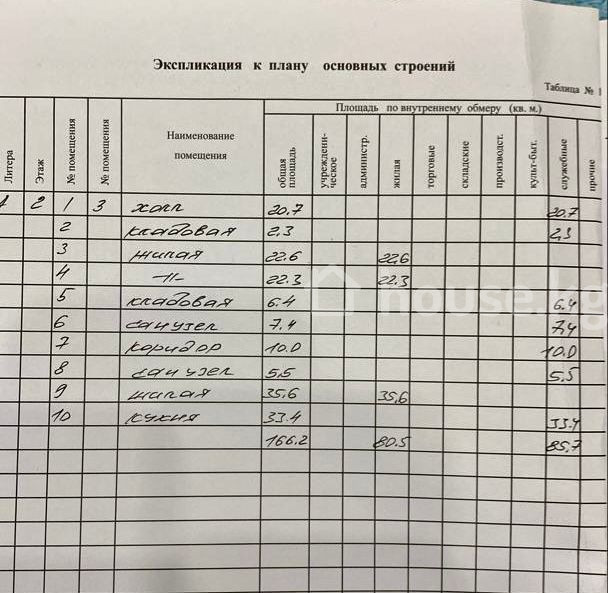 Экспликация к плану основных строений
Таблица №
Площадь по внутреннему обмеру (кв. м.)
Литера Этаж № помещения № помещения Наименование помещения общая площадь учреждени-ческое администр. жилая торговые складские производст. культ-быт. служебные прочие
2 1 3 холл 20.7 20.7
2 кладовая 2.3 2,3
3 жилая 22.6 22,6
4 -//- 22.3 22.3
5 кладовая 6.4 6.4
6 санузел 7.4 7,4
7 коридор 10.0 10.0
8 санузел 5,5 5,5
9 жилая 35,6 35,6
10 кухня 33.4 33.4
166.2 80.5 85,7
house.kg